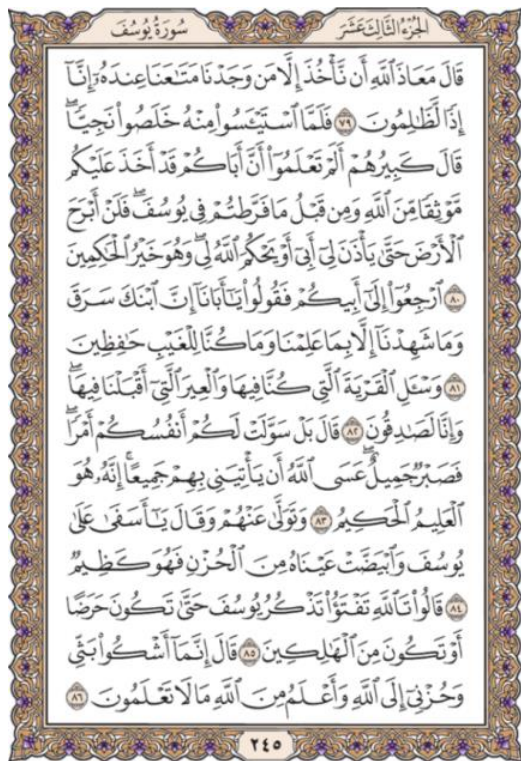 الجُزْءُ الثَّالِثَ عَشَرَ
سُورَةُ يُوسُفَ
قَالَ مَعَاذَ ٱللَّهِ أَن نَّأْخُذَ إِلَّا مَن وَجَدْنَا مَتَٰعَنَا عِندَهُۥٓ إِنَّآ
إِذًا لَّظَٰلِمُونَ ٧٩ فَلَمَّا ٱسْتَيْـَٔسُوا۟ مِنْهُ خَلَصُوا۟ نَجِيًّاۖ
قَالَ كَبِيرُهُمْ أَلَمْ تَعْلَمُوٓا۟ أَنَّ أَبَاكُمْ قَدْ أَخَذَ عَلَيْكُم
مَّوْثِقًا مِّنَ ٱللَّهِ وَمِن قَبْلُ مَا فَرَّطتُمْ فِى يُوسُفَۖ فَلَنْ أَبْرَحَ
ٱلْأَرْضَ حَتَّىٰ يَأْذَنَ لِىٓ أَبِىٓ أَوْ يَحْكُمَ ٱللَّهُ لِىۖ وَهُوَ خَيْرُ ٱلْحَٰكِمِينَ
٨٠ ٱرْجِعُوٓا۟ إِلَىٰٓ أَبِيكُمْ فَقُولُوا۟ يَٰٓأَبَانَآ إِنَّ ٱبْنَكَ سَرَقَ
وَمَا شَهِدْنَآ إِلَّا بِمَا عَلِمْنَا وَمَا كُنَّا لِلْغَيْبِ حَٰفِظِينَ
٨١ وَسْـَٔلِ ٱلْقَرْيَةَ ٱلَّتِى كُنَّا فِيهَا وَٱلْعِيرَ ٱلَّتِىٓ أَقْبَلْنَا فِيهَاۖ
وَإِنَّا لَصَٰدِقُونَ ٨٢ قَالَ بَلْ سَوَّلَتْ لَكُمْ أَنفُسُكُمْ أَمْرًاۖ
فَصَبْرٌ جَمِيلٌۖ عَسَى ٱللَّهُ أَن يَأْتِيَنِى بِهِمْ جَمِيعًاۚ إِنَّهُۥ هُوَ
ٱلْعَلِيمُ ٱلْحَكِيمُ ٨٣ وَتَوَلَّىٰ عَنْهُمْ وَقَالَ يَٰٓأَسَفَىٰ عَلَىٰ
يُوسُفَ وَٱبْيَضَّتْ عَيْنَاهُ مِنَ ٱلْحُزْنِ فَهُوَ كَظِيمٌ
٨٤ قَالُوا۟ تَٱللَّهِ تَفْتَؤُا۟ تَذْكُرُ يُوسُفَ حَتَّىٰ تَكُونَ حَرَضًا
أَوْ تَكُونَ مِنَ ٱلْهَٰلِكِينَ ٨٥ قَالَ إِنَّمَآ أَشْكُوا۟ بَثِّى
وَحُزْنِىٓ إِلَى ٱللَّهِ وَأَعْلَمُ مِنَ ٱللَّهِ مَا لَا تَعْلَمُونَ ٨٦
٢٤٥